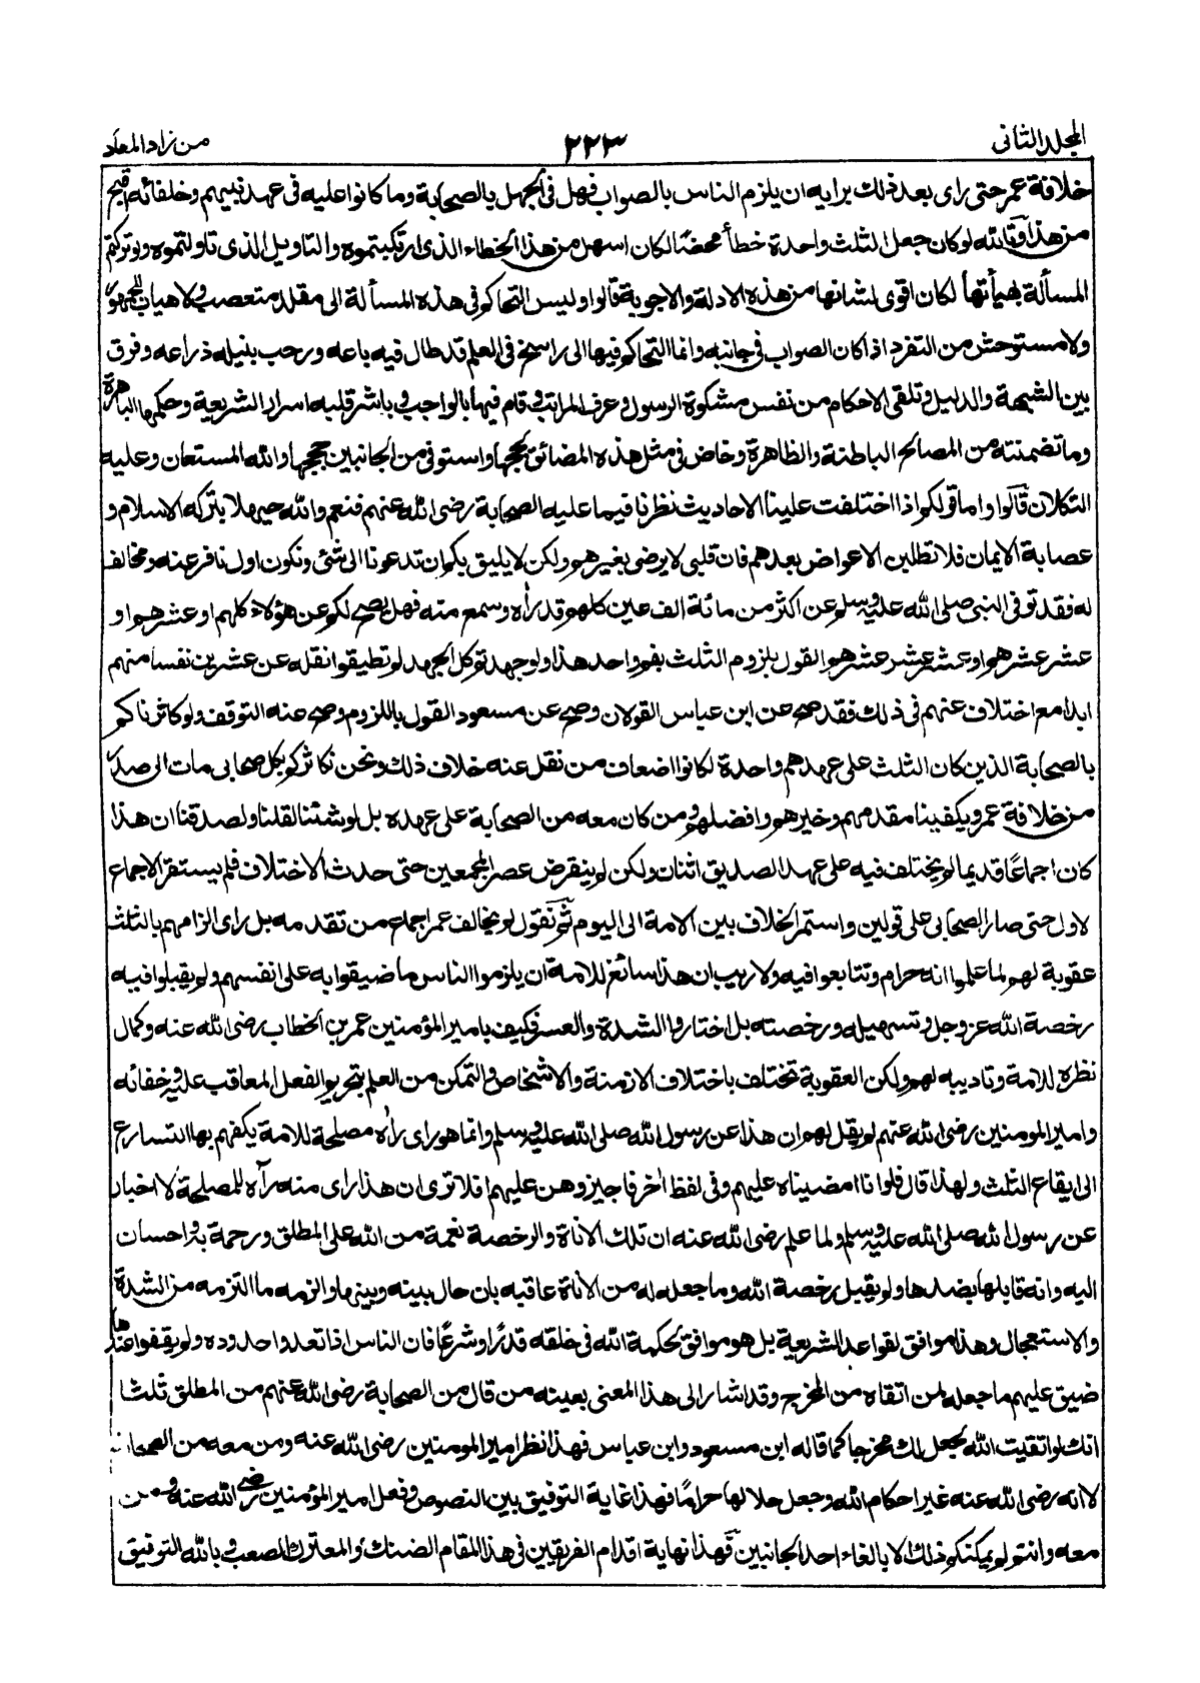 المجلد الثانى
٢٢٣
من زاد المعاد
خلافة عمر حتى راى بعد ذلك برايه ان يلزم الناس بالصواب فهل فى الجهل بالصحابة وما كانوا عليه فى عهد نبيهم وخلفائه اقبح
من هذا فتالله لو كان جعل الثلث واحدة خطأ محضا لكان اسهل من هذا الخطاء الذى ارتكبتموه والتاويل الذى تاولتموه ولو تركتم
المسألة بهيأتها لكان اقوى لشانها من هذه الادلة والاجوبة قالوا وليس التحاكم فى هذه المسألة الى مقلد متعصب ولا هياب للجمهور
ولا مستوحش من التفرد اذا كان الصواب فى جانبه وانما التحاكم فيها الى راسخ فى العلم قد طال فيه باعه ورحب بنيله ذراعه وفرق
بين الشبهة والدليل وتلقى الاحكام من نفس مشكوة الرسول وعرف المراتب وقام فيها بالواجب وباشر قلبه اسرار الشريعة وحكمها الباهرة
وما تضمنته من المصالح الباطنة والظاهرة وخاض فى مثل هذه المضائق لججها واستوفى من الجانبين حججها والله المستعان وعليه
التكلان قالوا واما قولكم اذا اختلفت علينا الاحاديث نظرنا فيما عليه الصحابة رضى الله عنهم فنعم والله حيهلا بتركه الاسلام و
عصابة الايمان فلا تطلبن الاعواض بعدهم فان قلبى لا يرضى بغيرهم ولكن لا يليق بكم ان تدعونا الى شئ ونكون اول نافر عنه ومخالف
له فقد توفى النبى صلى الله عليه وسلم عن اكثر من مائة الف عين كلهم قد رأه وسمع منه فهل يصح لكم عن هؤلاء كلهم او عشرهم او
عشر عشرهم او عشر عشر عشرهم القول بلزوم الثلث بفم واحد هذا ولو جهدتم كل الجهد لم تطيقوا نقله عن عشرين نفسا منهم
ابدا مع اختلاف عنهم فى ذلك فقد صح عن ابن عباس القولان وصح عن مسعود القول باللزوم وصح عنه التوقف ولو كاثرناكم
بالصحابة الذين كان الثلث على عهدهم واحدة لكانوا اضعاف من نقل عنه خلاف ذلك ونحن نكاثركم بكل صحابى مات الى صدر
من خلافة عمر ويكفينا مقدمهم وخيرهم وافضلهم ومن كان معه من الصحابة على عهده بل لو شئنا لقلنا ولصدقنا ان هذا
كان اجماعًا قديما لم يختلف فيه على عهد الصديق اثنان ولكن لم ينقرض عصر المجمعين حتى حدث الاختلاف فلم يستقر الاجماع
لاول حتى صار الصحابى على قولين واستمر الخلاف بين الامة الى اليوم ثم نقول لم يخالف عمر اجماع من تقدمه بل راى الزامهم بالثلث
عقوبة لهم لما علموا انه حرام وتتابعوا فيه ولا ريب ان هذا سائغ للامة ان يلزموا الناس ما ضيقوا به على انفسهم ولم يقبلوا فيه
رخصة الله عز وجل وتسهيله ورخصته بل اختاروا الشدة والعسر فكيف بامير المؤمنين عمر بن الخطاب رضى الله عنه وكمال
نظره للامة وتاديبه لهم ولكن العقوبة تختلف باختلاف الازمنة والاشخاص والتمكن من العلم بتحريم الفعل المعاقب عليه وخفائه
وامير المومنين رضى الله عنهم لم يقل لهم ان هذا عن رسول الله صلى الله عليه وسلم وانما هو راى رأه مصلحة للامة يكفهم بها التسارع
الى ايقاع الثلث ولهذا قال فلو انا امضيناه عليهم وفى لفظ اخر فاجيزوهن عليهم افلا ترى ان هذا راى منه رآه للمصلحة لا اخبار
عن رسول الله صلى الله عليه وسلم ولما علم رضى الله عنه ان تلك الاناة والرخصة نعمة من الله على المطلق ورحمة به واحسان
اليه وانه قابلها بضدها ولم يقبل رخصة الله وما جعله له من الاناة عاقبه بان حال بينه وبينها والزمه ما التزمه من الشدة
والاستعجال وهذا موافق لقواعد الشريعة بل هو موافق لحكمة الله فى خلقه قدرًا وشرعًا فان الناس اذا تعدوا حدوده ولم يقفوا عندها
ضيق عليهم ما جعله لمن اتقاه من المخرج وقد اشار الى هذا المعنى بعينه من قال من الصحابة رضى الله عنهم من المطلق ثلثا
انك لو اتقيت الله لجعل لك مخرجا كما قاله ابن مسعود وابن عباس فهذا نظر امير المومنين رضى الله عنه ومن معه من الصحابة
لا انه رضى الله عنه غير احكام الله وجعل حلالها حرامًا فهذا غاية التوفيق بين النصوص وفعل امير المؤمنين رضى الله عنه ومن
معه وانتم لم يمكنكم ذلك الا بالغاء احد الجانبين فهذا نهاية اقدام الفريقين فى هذا المقام الضنك والمعترك الصعب وبالله التوفيق